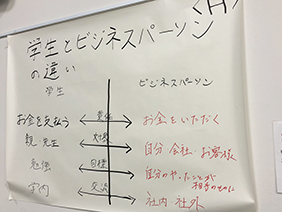 学生とビジネスパーソン
の違い
学生
ビジネスパーソン
お金を支払う 責任 お金をいただく
親 先生 対象 自分 会社 お客様
勉強 目標 自分のやったことが
相手のために
学内 交流 社内 社外